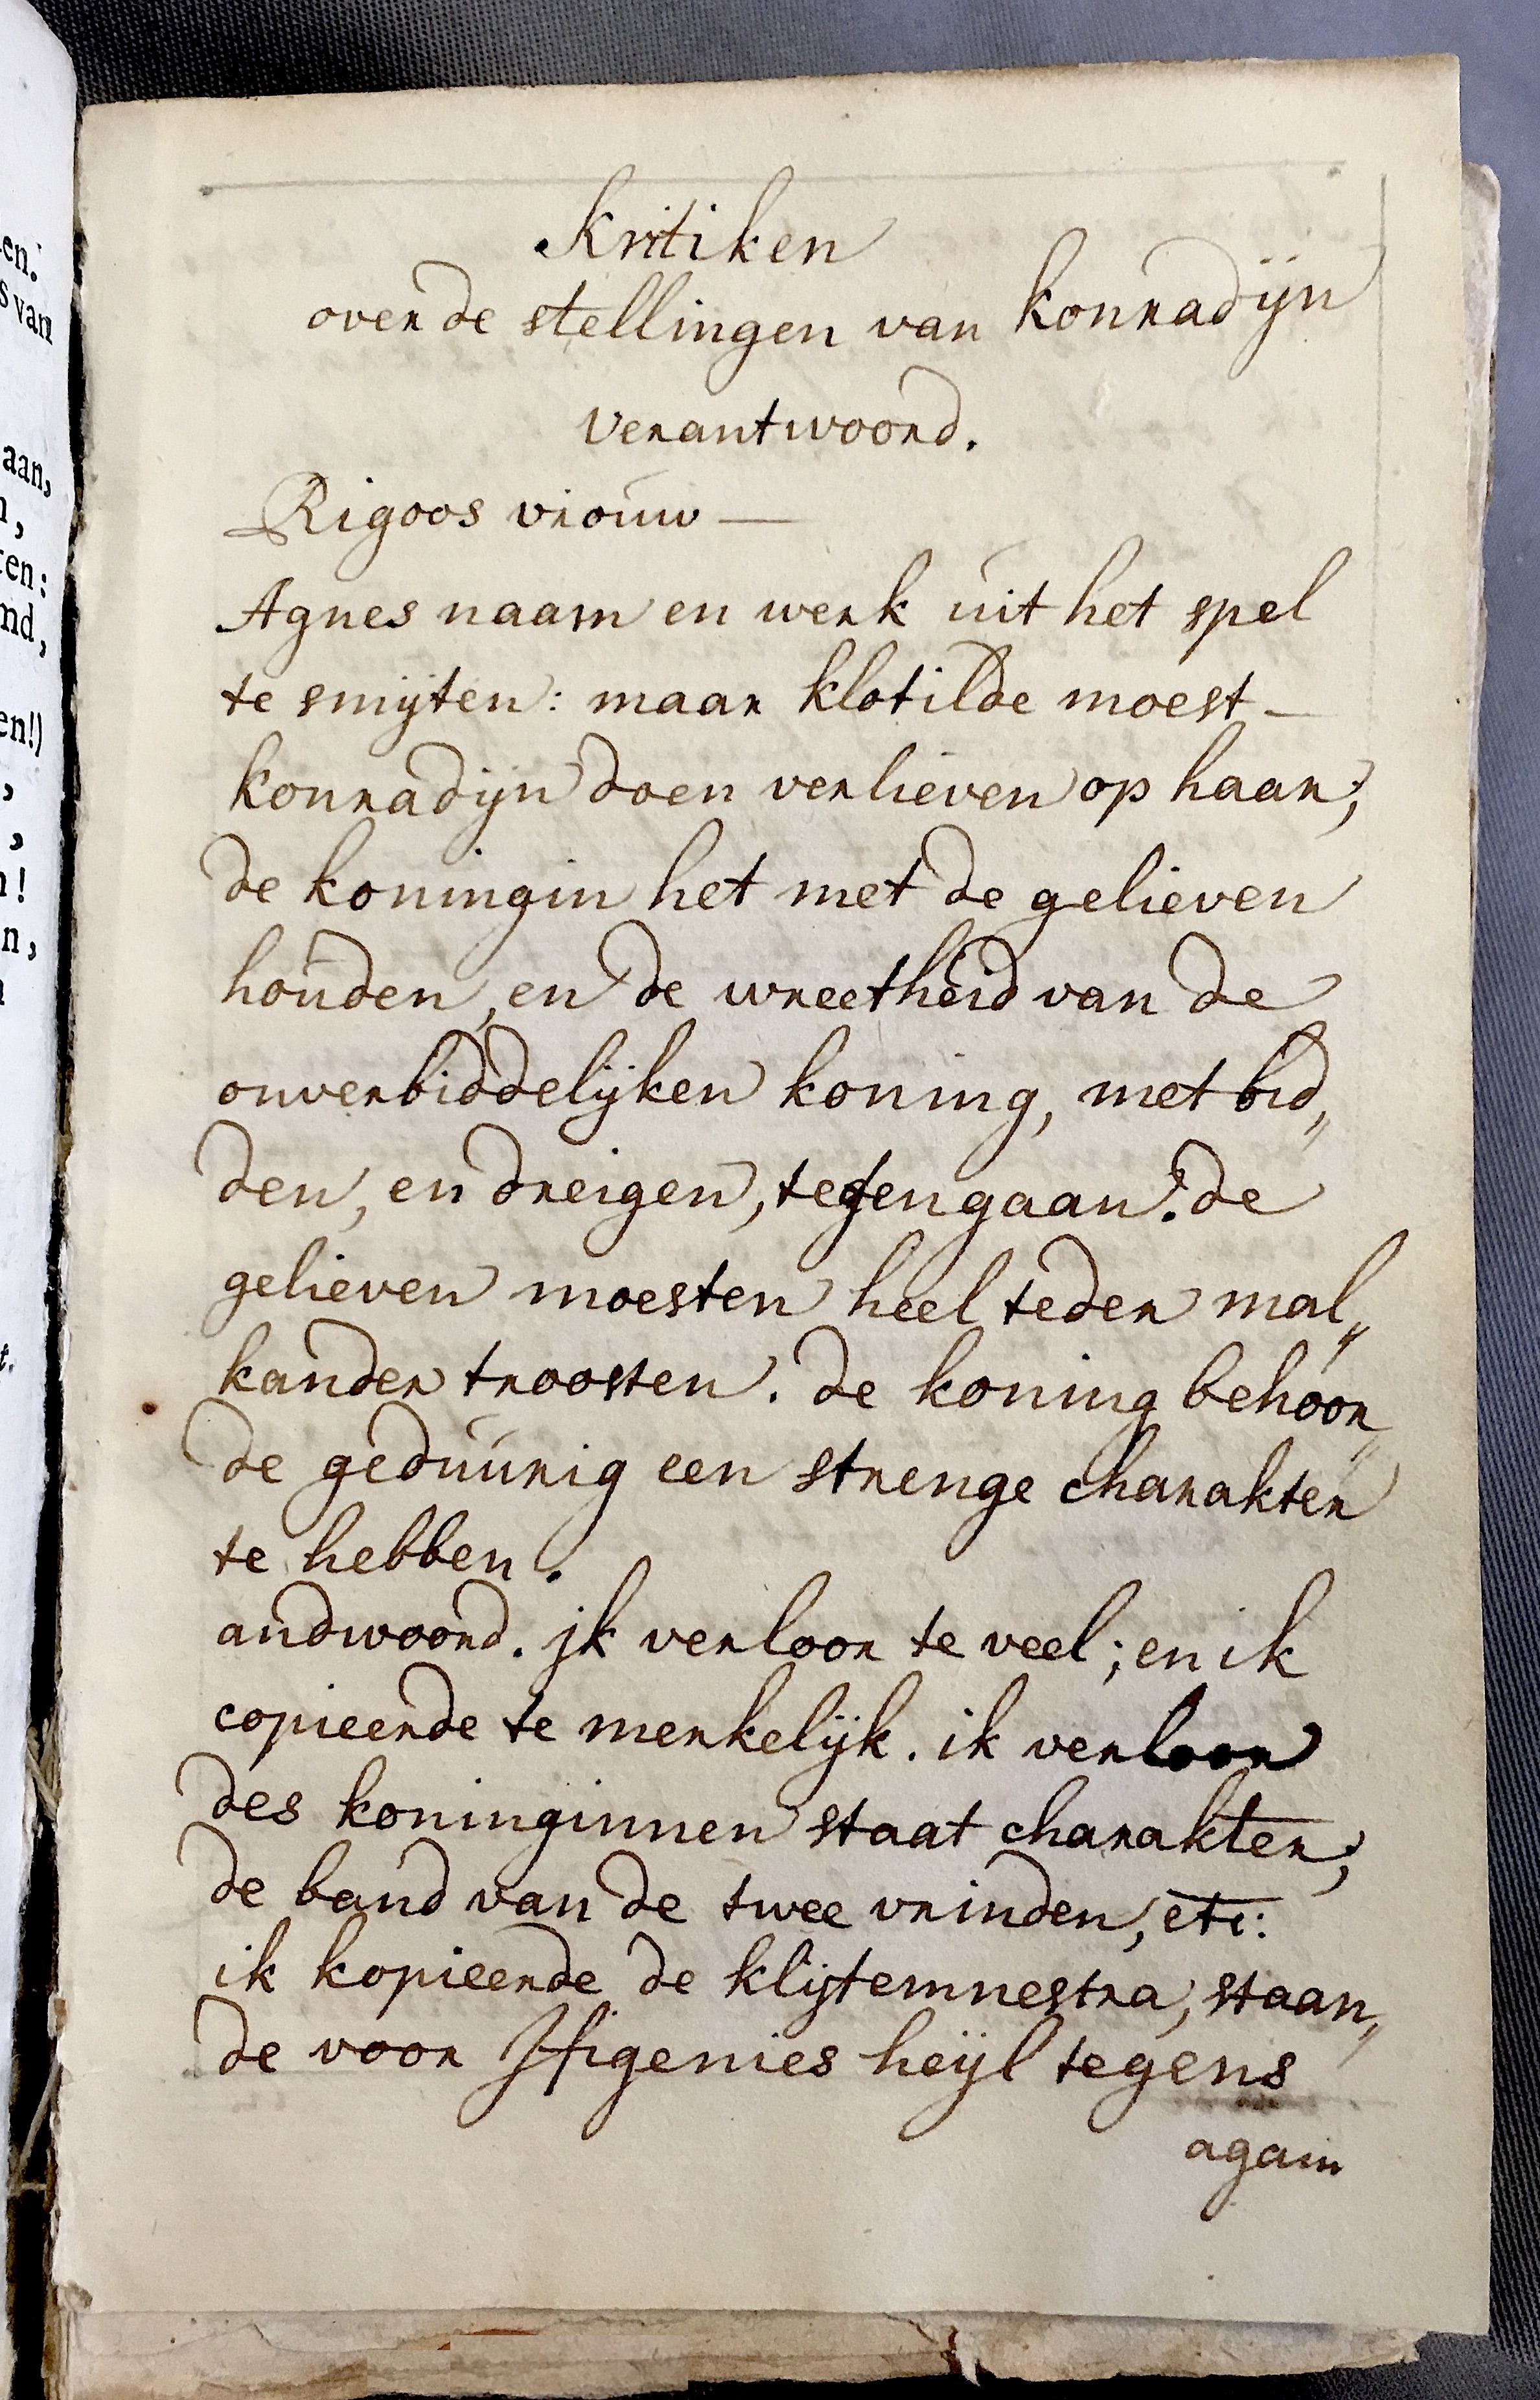 Kritiken
over de stellingen van konradijn
verantwoord.
Rigoos vrouw —
Agnes naam en werk uit het spel
te smijten: maar klotilde moest —
konradijn doen verlieven op haar;
de koningin het met de gelieven
houden, en de wreetheid van de
onverbiddelijken koning, met bid„
den, en dreigen, tegengaan. de
gelieven moesten heel teder mal„
kander troosten. de koning behoor„
de geduurig een strenge charakter
te hebben.
andwoord. jk verloor te veel; en ik
copieerde te merkelijk. ik verloor
des koninginnen staat charakter;
de band van de twee vrinden, etc:
ik kopieerde de klijtemnestra, staan„
de voor Ifigenies heijl tegens
again
en.
s van
aan,
n,
ten:
nd,
en!)
,
,
n!
n,
t.